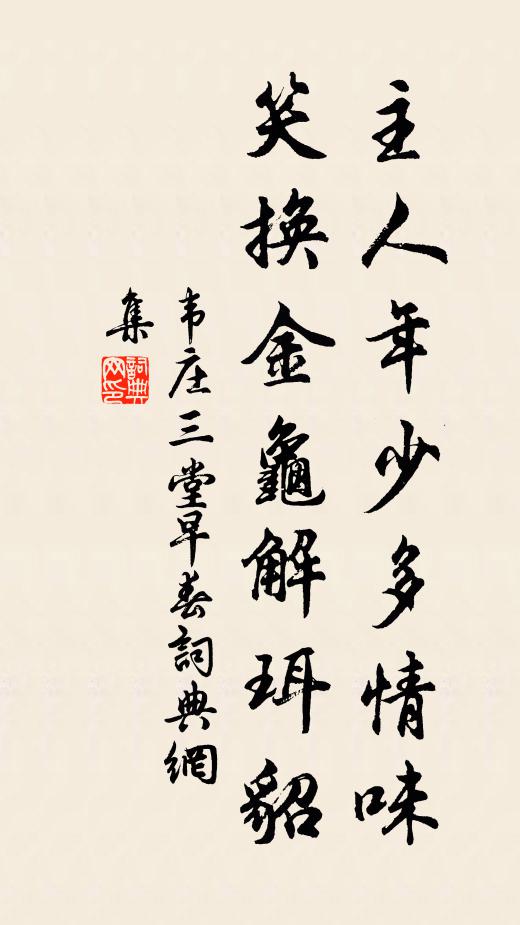 主人年少多情味
笑換金龜解珥貂
韦庄三堂早春詞典網
集
詞典網印